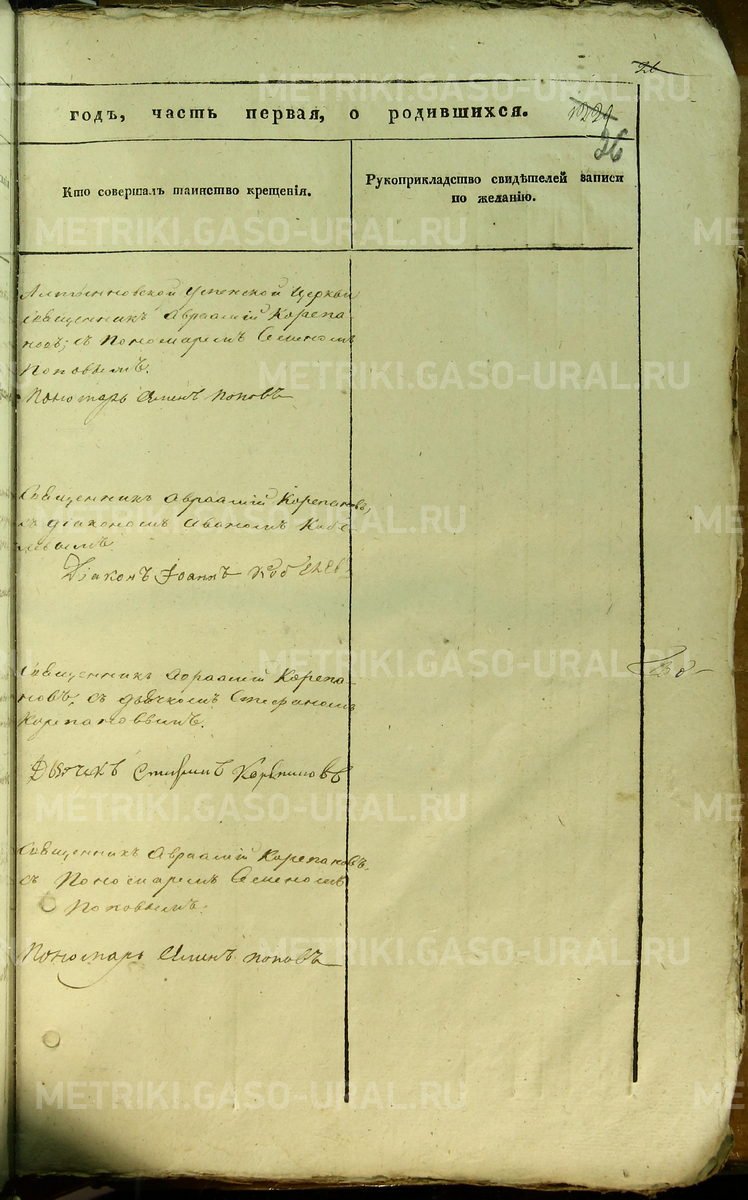 26
годъ, часть первая, о родившихся.
1229
26
Кто совершалъ таинство крещенія.
Рукоприкладство свидѣтелей записи
по желанію.
Успенской Церкви
Священникъ Авраамій Корепа
новъ; съ Пономаремъ Семеномъ
Поповымъ.
Пономарь Семенъ поповъ
Священникъ Авраамій Корепановъ,
съ діакономъ Іваномъ Кобе
левымъ
Діаконъ Іоаннъ Кобелевъ
Священникъ Авраамій Корепа-
новъ; съ дьячкомъ Стефаномъ
Корепановымъ.
Дьячекъ Стефанъ Корепановъ
Священникъ Авраамій Корепановъ.
съ Пономаремъ Семеномъ
Поповымъ.
Пономарь Семенъ поповъ
METRIKI.GASO-URAL.RU